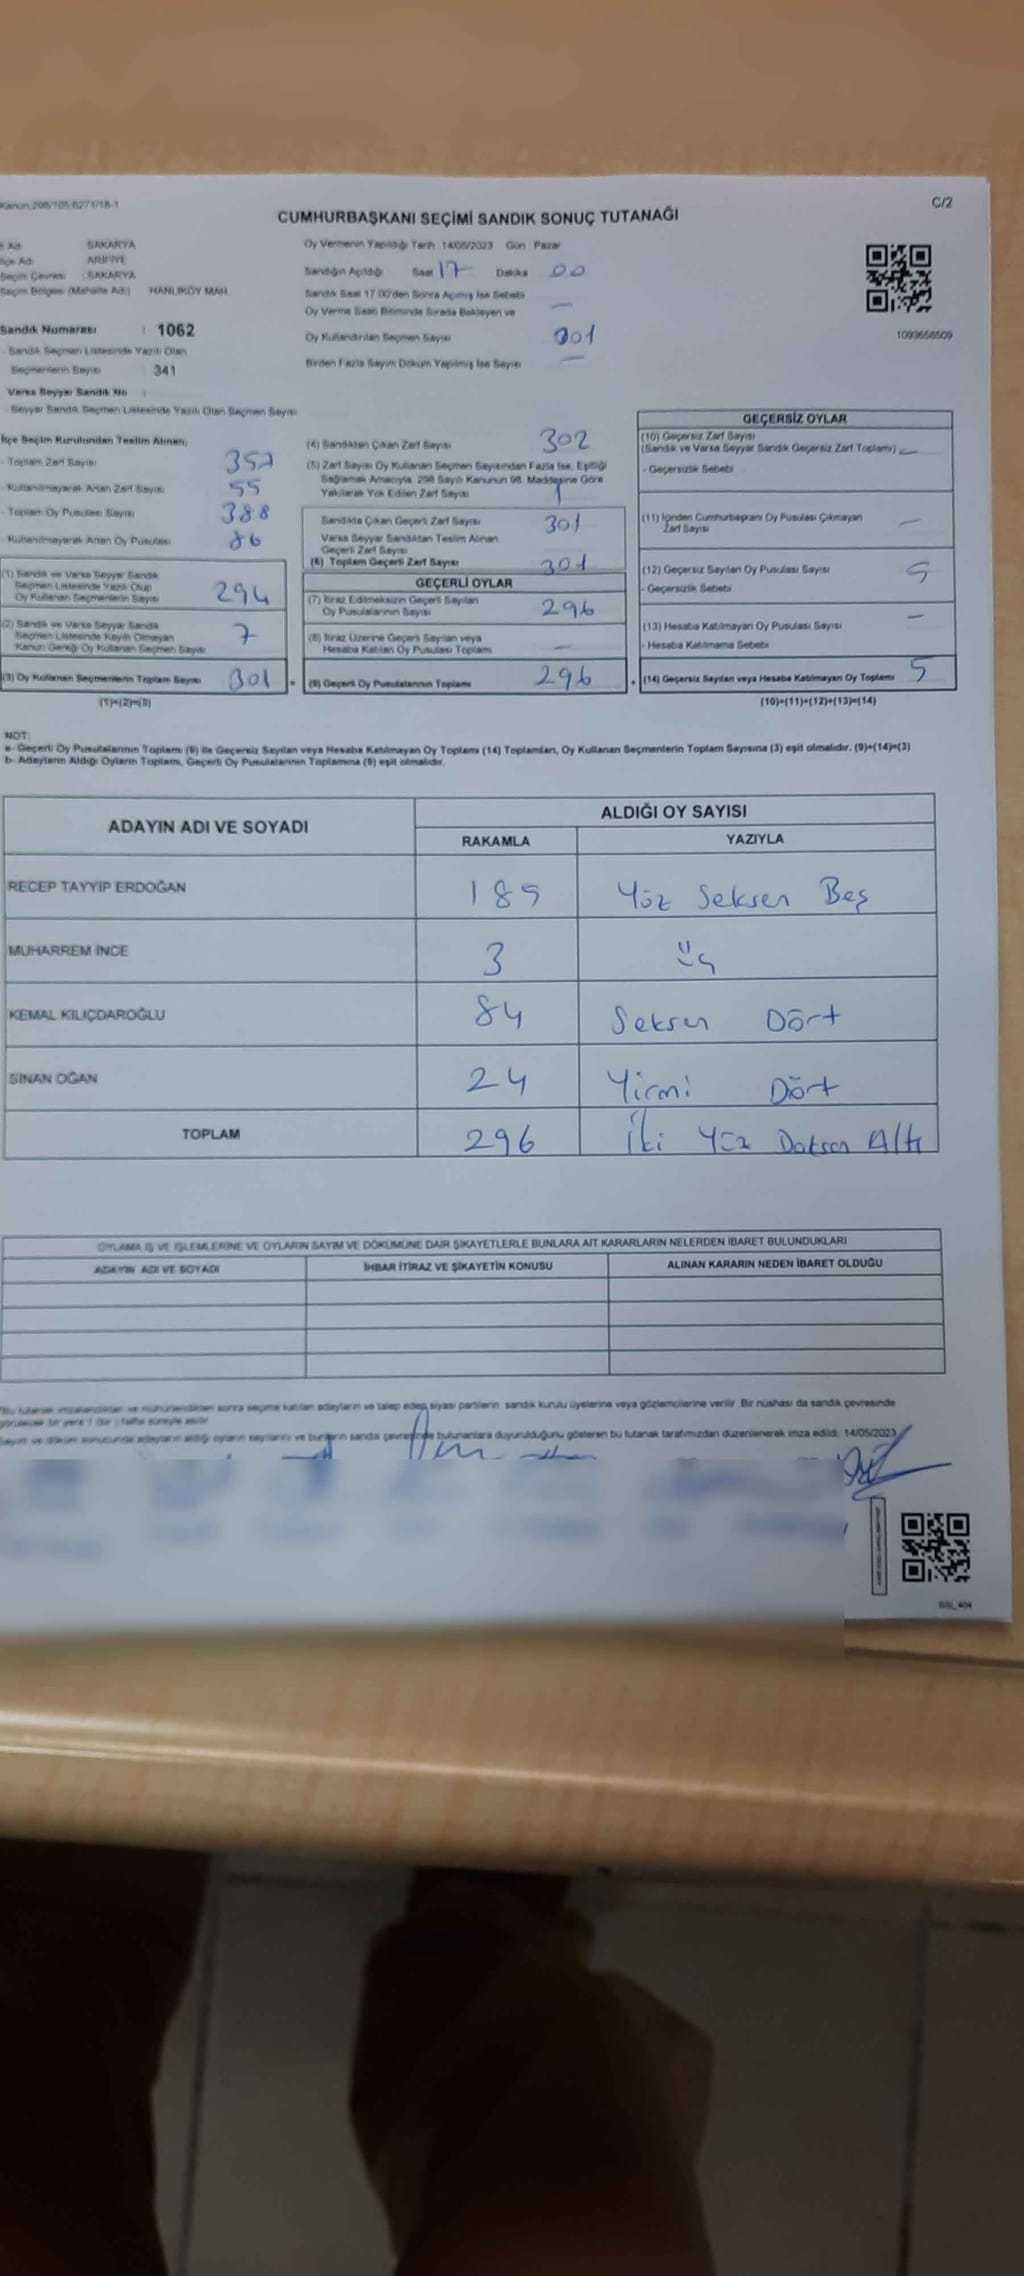 Kanun:298/105.6271/18-1
C/2
CUMHURBAŞKANI SEÇİMİ SANDIK SONUÇ TUTANAĞI
İl Adı SAKARYA
İlçe Adı ARİFİYE
Seçim Çevresi : SAKARYA
Seçim Bölgesi (Mahalle Adı) HANLIKÖY MAH.
Sandık Numarası : 1062
- Sandık Seçmen Listesinde Yazılı Olan
Seçmenlerin Sayısı : 341
Varsa Seyyar Sandık No :
- Seyyar Sandık Seçmen Listesinde Yazılı Olan Seçmen Sayısı
Oy Vermenin Yapıldığı Tarih 14/05/2023 Gün Pazar
Sandığın Açıldığı Saat 17 Dakika 00
Sandık Saat 17.00'den Sonra Açılmış İse Sebebi
Oy Verme Saati Bitiminde Sırada Bekleyen ve —
Oy Kullandırılan Seçmen Sayısı 301
Birden Fazla Sayım Döküm Yapılmış İse Sayısı —
1093658509
İlçe Seçim Kurulundan Teslim Alınan;
- Toplam Zarf Sayısı 357
- Kullanılmayarak Artan Zarf Sayısı 55
- Toplam Oy Pusulası Sayısı 388
- Kullanılmayarak Artan Oy Pusulası 86
(1) Sandık ve Varsa Seyyar Sandık
Seçmen Listesinde Yazılı Olup
Oy Kullanan Seçmenlerin Sayısı 294
(2) Sandık ve Varsa Seyyar Sandık
Seçmen Listesinde Kayıtlı Olmayan
Kanun Gereği Oy Kullanan Seçmen Sayısı 7
(3) Oy Kullanan Seçmenlerin Toplam Sayısı 301 =
(1)+(2)=(3)
(4) Sandıktan Çıkan Zarf Sayısı 302
(5) Zarf Sayısı Oy Kullanan Seçmen Sayısından Fazla İse, Eşitliği
Sağlamak Amacıyla, 298 Sayılı Kanunun 98. Maddesine Göre
Yakılarak Yok Edilen Zarf Sayısı 1
Sandıkta Çıkan Geçerli Zarf Sayısı 301
Varsa Seyyar Sandıktan Teslim Alınan
Geçerli Zarf Sayısı
(6) Toplam Geçerli Zarf Sayısı 301
GEÇERLİ OYLAR
(7) İtiraz Edilmeksizin Geçerli Sayılan
Oy Pusulalarının Sayısı 296
(8) İtiraz Üzerine Geçerli Sayılan veya
Hesaba Katılan Oy Pusulası Toplamı —
(9) Geçerli Oy Pusulalarının Toplamı 296 +
GEÇERSİZ OYLAR
(10) Geçersiz Zarf Sayısı
(Sandık ve Varsa Seyyar Sandık Geçersiz Zarf Toplamı) —
- Geçersizlik Sebebi
(11) İçinden Cumhurbaşkanı Oy Pusulası Çıkmayan
Zarf Sayısı —
(12) Geçersiz Sayılan Oy Pusulası Sayısı 5
- Geçersizlik Sebebi
(13) Hesaba Katılmayan Oy Pusulası Sayısı —
- Hesaba Katılmama Sebebi
(14) Geçersiz Sayılan veya Hesaba Katılmayan Oy Toplamı 5
(10)+(11)+(12)+(13)=(14)
NOT:
a- Geçerli Oy Pusulalarının Toplamı (9) ile Geçersiz Sayılan veya Hesaba Katılmayan Oy Toplamı (14) Toplamları, Oy Kullanan Seçmenlerin Toplam Sayısına (3) eşit olmalıdır. (9)+(14)=(3)
b- Adayların Aldığı Oyların Toplamı, Geçerli Oy Pusulalarının Toplamına (9) eşit olmalıdır.
ADAYIN ADI VE SOYADI ALDIĞI OY SAYISI
RAKAMLA YAZIYLA
RECEP TAYYİP ERDOĞAN 185 Yüz Seksen Beş
MUHARREM İNCE 3 Üç
KEMAL KILIÇDAROĞLU 84 Seksen Dört
SİNAN OĞAN 24 Yirmi Dört
TOPLAM 296 İki Yüz Doksan Altı
OYLAMA İŞ VE İŞLEMLERİNE VE OYLARIN SAYIM VE DÖKÜMÜNE DAİR ŞİKAYETLERLE BUNLARA AİT KARARLARIN NELERDEN İBARET BULUNDUKLARI
ADAYIN ADI VE SOYADI İHBAR İTİRAZ VE ŞİKAYETİN KONUSU ALINAN KARARIN NEDEN İBARET OLDUĞU
Bu tutanak imzalandıktan ve mühürlendikten sonra seçime katılan adayların ve talep eden siyasi partilerin sandık kurulu üyelerine veya gözlemcilerine verilir. Bir nüshası da sandık çevresinde
görülecek bir yere 1 (bir) hafta süreyle asılır.
Sayım ve döküm sonucunda adayların aldığı oyların sayılarını ve bunların sandık çevresinde bulunanlara duyurulduğunu gösteren bu tutanak tarafımızdan düzenlenerek imza edildi. 14/05/2023